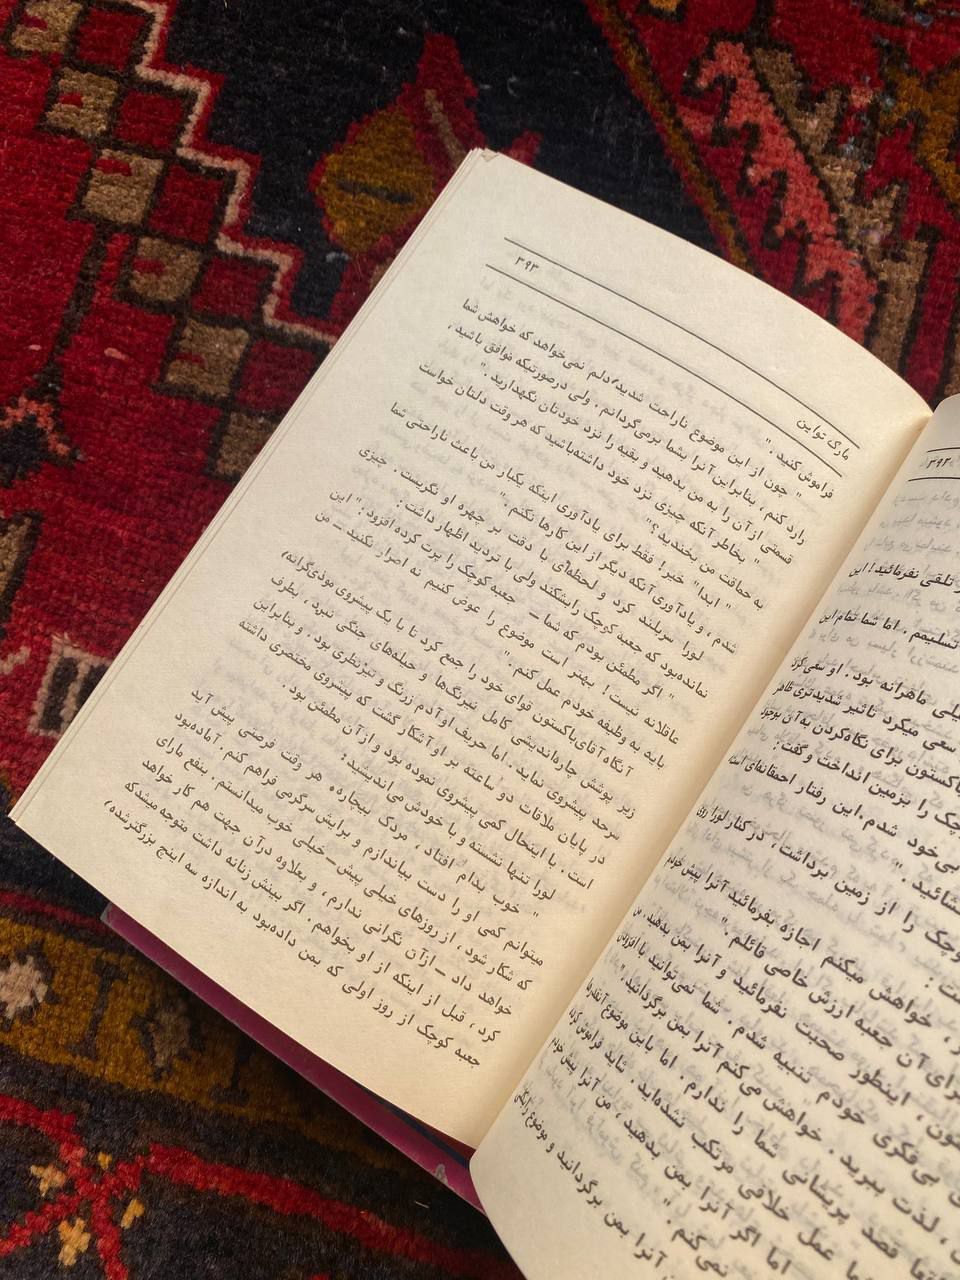 ۳۹۲
تلقی نفرمائید! این
تسلیمم . اما شما تمام این
ماهرانه بود. او سعی کرد
سعی میکرد تاثیر شدیدتری ظاهر
باکستون برای نگاه‌کردن به آن بوجود
را بزمین انداخت وگفت :
بی‌خود شدم. این رفتار احمقانه‌ای است
را از زمین برداشت، در کنار لورا زانو
خواهش میکنم اجازه بفرمائید آنرا پیش خودم
برای آن جعبه ارزش خاصی قائلم."
اینطور صحبت نفرمائید و آنرا بمن بدهید. من
بی‌فکری خودم تنبیه شدم. شما نمی‌توانید با افزودن
، لذت ببرید. خواهش می‌کنم آنرا بمن برگردانید."
قصد پریشانی شما را ندارم. اما باین موضوع آنقدرها
عمل خلافی مرتکب نشده‌اید. شاید فراموش کرده
اما اگر آنرا بمن بدهید، من آنرا پیش خودم
نمی‌کنم."
آنرا بمن برگردانید و موضوع را بکلی
مارک تواین ۳۹۳
فراموش کنید."
" چون از این موضوع ناراحت شدید، دلم نمی‌خواهد که خواهش شما
رارد کنم ، بنابراین آنرا بشما برمی‌گردانم . ولی درصورتیکه موافق باشید ،
قسمتی از آن را به من بدهید و بقیه را نزد خودتان نگهدارید ."
" بخاطر آنکه چیزی نزد خود داشته‌باشید که هر وقت دلتان خواست
به حماقت من بخندید ؟"
" ابدا" خیر! فقط برای یادآوری اینکه یکبار من باعث ناراحتی شما
شدم ، و یادآوری آنکه دیگر از این کارها نکنم ."
لورا سربلند کرد و لحظه‌ای با دقت بر چهره او نگریست . چیزی
نمانده‌بود که جعبه کوچک را بشکند ولی با تردید اظهار داشت :
" اگر مطمئن بودم که شما — جعبه کوچک را پرت کرده افزود :" این
عاقلانه نیست ! بهتر است موضوع را عوض کنیم نه اصرار نکنید — من
باید به وظیفه خودم عمل کنم ."
آنگاه آقای باکستون قوای خود را جمع کرد تا با یک پیشروی موذی‌گرانه،
زیر پوشش چاره‌اندیشی کامل نیرنگ‌ها و حیله‌های جنگی نبرد ، بطرف
سرحد پیشروی نماید . اما حریف او آدم زرنگ و تیزنظری بود . و بنابراین
در پایان ملاقات دو ساعته بر او آشکار گشت که پیشروی مختصری داشته
است . با اینحال کمی پیشروی نموده بود و از آن مطمئن بود .
لورا تنها نشسته و با خودش می‌اندیشید :
" خوب بدام افتاد ، مردک بیچاره. هر وقت فرصتی پیش آید
میتوانم کمی او را دست بیاندازم و برایش سرگرمی فراهم کنم. آماده‌بود
که شکار شود ، از روزهای خیلی پیش — خیلی خوب میدانستم . بنفع مارای
خواهد داد — از آن نگرانی ندارم ، و بعلاوه درآن جهت هم کار خواهد
کرد ، قبل از اینکه از او بخواهم. اگر بینش زنانه داشت متوجه میشدکه
جعبه کوچک از روز اولی که بمن داده‌بود به اندازه سه اینچ بزرگترشده)